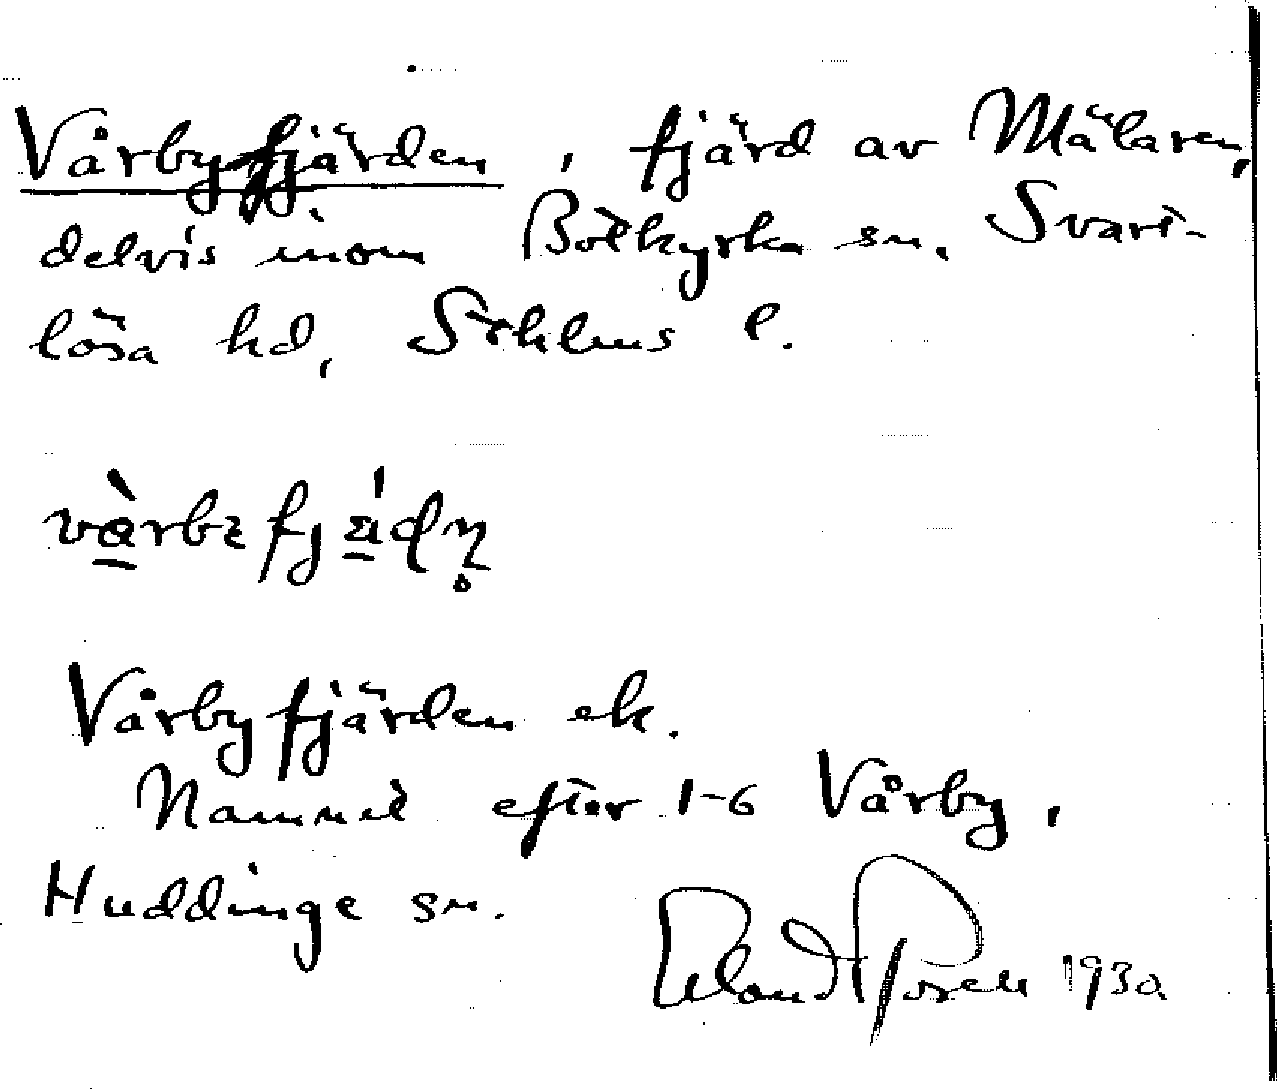 Vårbyfjärden, fjärd av Mälaren,
delvis inom Botkyrka sn. Svart-
lösa hd, Sthlms l.
Vårbyfjärden ek.
Namnet efter 1-6 Vårby,
Huddinge sn.
1930